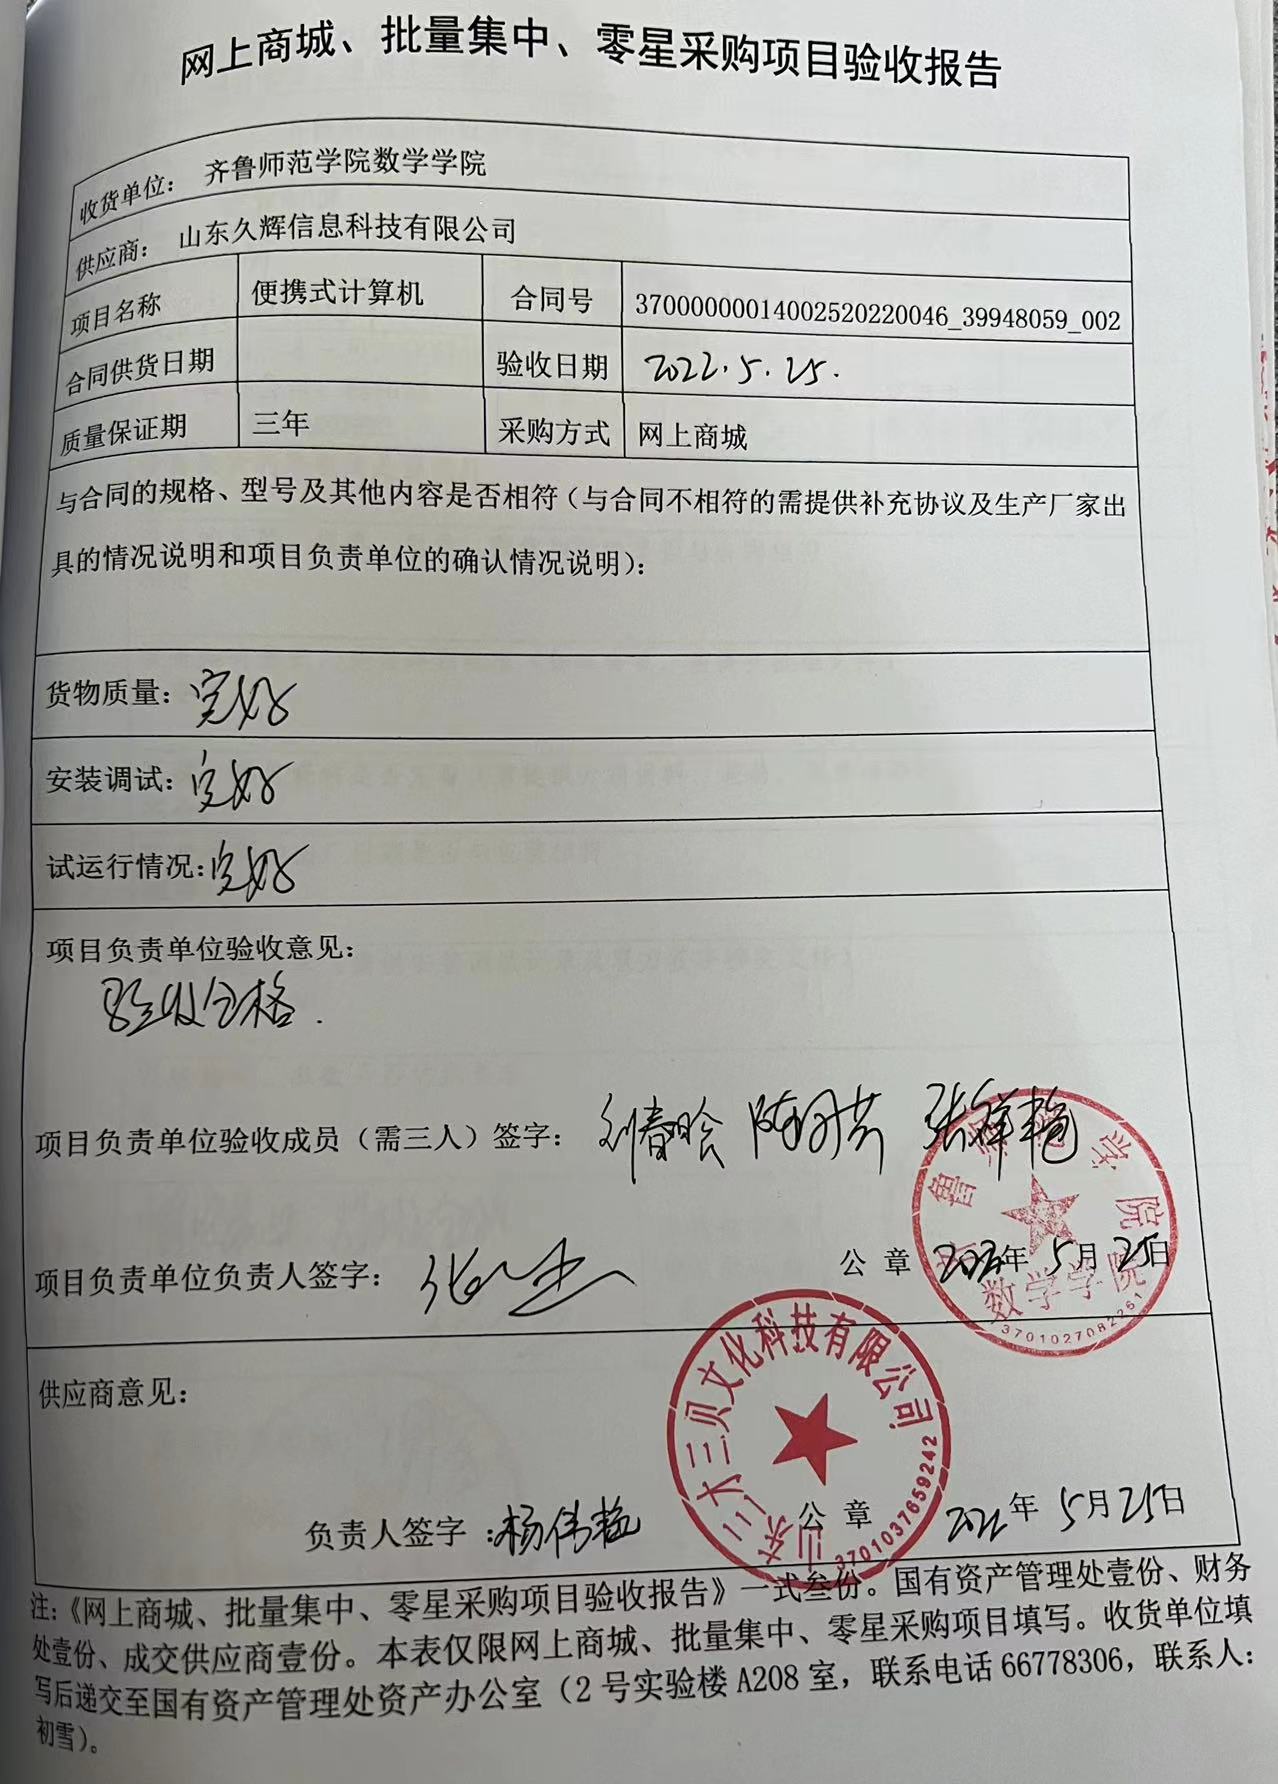 网上商城、批量集中、零星采购项目验收报告
收货单位： 齐鲁师范学院数学学院
供应商： 山东久辉信息科技有限公司
项目名称 便携式计算机 合同号 37000000014002520220046_39948059_002
合同供货日期 验收日期 2022.5.25.
质量保证期 三年 采购方式 网上商城
与合同的规格、型号及其他内容是否相符（与合同不相符的需提供补充协议及生产厂家出
具的情况说明和项目负责单位的确认情况说明）：
货物质量：完好
安装调试：完好
试运行情况：完好
项目负责单位验收意见：
验收合格.
项目负责单位验收成员（需三人）签字： 刘春晗 张祥艳
项目负责单位负责人签字： 公 章 2022年 5月 25日
齐鲁师范学院
数学学院
3701027082261
供应商意见：
山东二三大三贝文化科技有限公司
3701037659242
负责人签字：杨伟艳 公 章 2022年 5月25日
注：《网上商城、批量集中、零星采购项目验收报告》一式叁份。国有资产管理处壹份、财务
处壹份、成交供应商壹份。本表仅限网上商城、批量集中、零星采购项目填写。收货单位填
写后递交至国有资产管理处资产办公室（2 号实验楼 A208 室，联系电话 66778306，联系人：
初雪）。